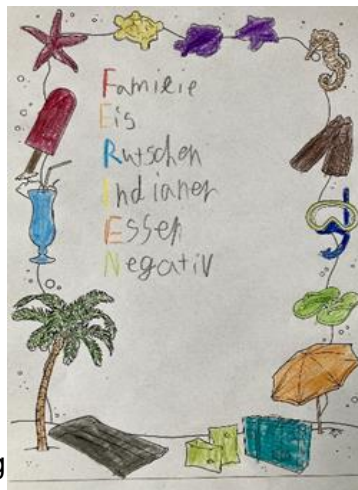 Familie
Eis
Rutschen
Indianer
Essen
Negativ
g